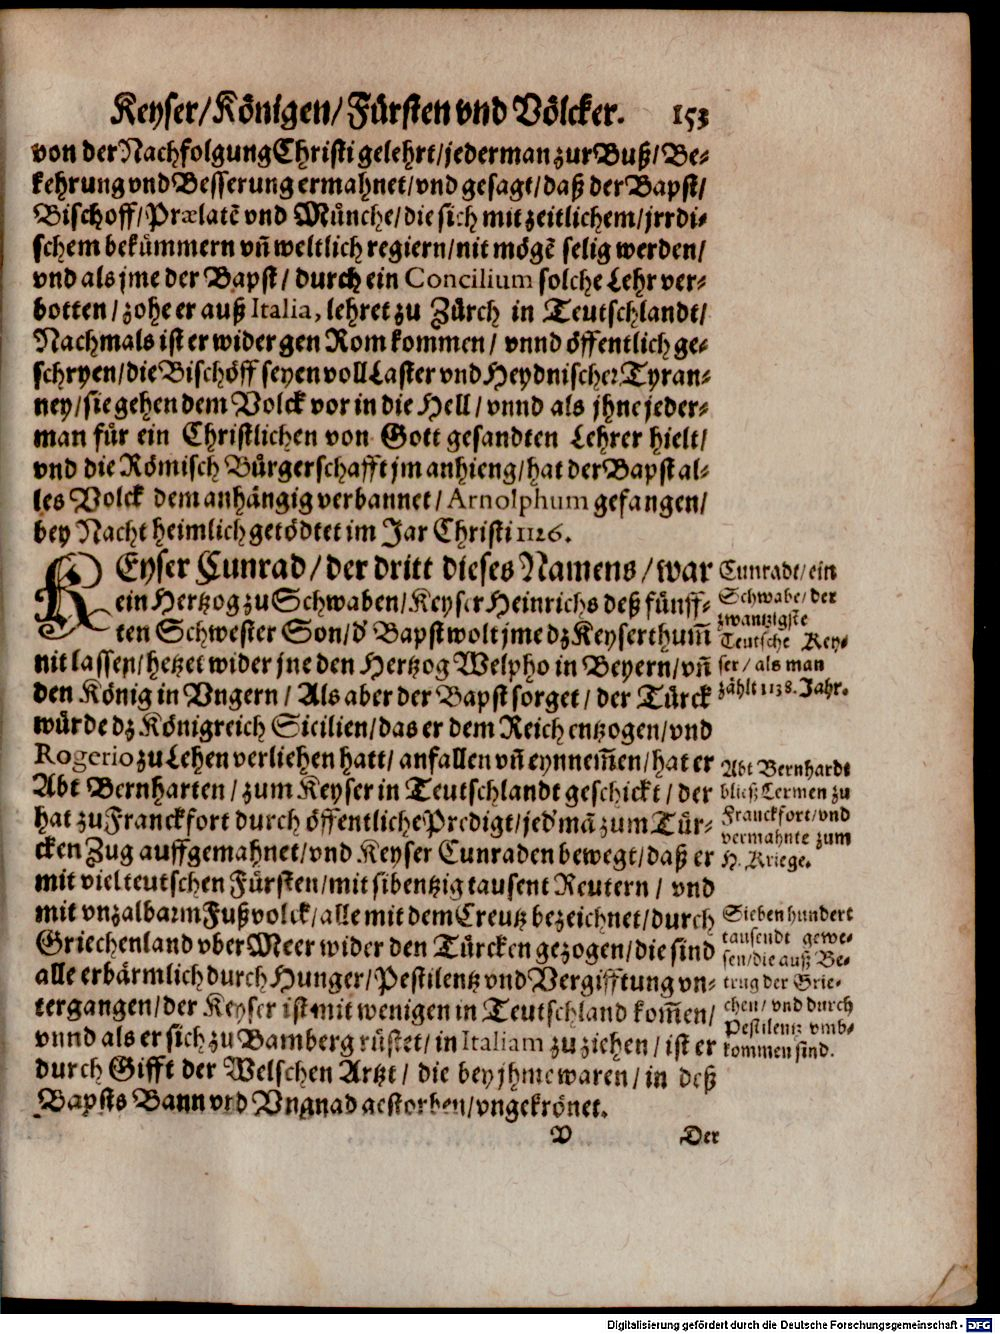 Keyser/Königen/Fürsten vnd Völcker. 153
von der Nachfolgung Christi gelehrt/jederman zur Buß/Be-
kehrung vnd Besserung ermahnet/vnd gesagt/daß der Bapst/
Bischoff/Prælatē vnd Münche/die sich mit zeitlichem/jrrdi-
schem bekümmern vñ weltlich regiern/nit mögē selig werden/
vnd als jme der Bapst/ durch ein Concilium solche Lehr ver-
botten/zohe er auß Italia, lehret zu Zürch in Teutschlandt/
Nachmals ist er wider gen Rom kommen/ vnnd öffentlich ge-
schryen/die Bischöff seyen voll Laster vnd Heydnischer Tyran-
ney/sie gehen dem Volck vor in die Hell/vnnd als jhne jeder-
man für ein Christlichen von Gott gesandten Lehrer hielt/
vnd die Römisch Bürgerschafft jm anhieng/hat der Bapst al-
les Volck dem anhängig verbannet/Arnolphum gefangen/
bey Nacht heimlich getödtet im Jar Christi 1126.
KEyser Cunrad/der dritt dieses Namens/war
ein Hertzog zu Schwaben/Keyser Heinrichs deß fünff-
ten Schwester Son/d' Bapst wolt jme dz Keyserthum̃
nit lassen/hetzet wider jne den Hertzog Welpho in Beyern/vñ
den König in Vngern/ Als aber der Bapst sorget/ der Türck
würde dz Königreich Sicilien/das er dem Reich entzogen/vnd
Rogerio zu Lehen verliehen hatt/anfallen vñ eynnem̃en/hat er
Abt Bernharten/zum Keyser in Teutschlandt geschickt/der
hat zu Franckfort durch öffentliche Predigt/jed'mā zum Tür-
cken Zug auffgemahnet/vnd Keyser Cunraden bewegt/daß er
mit viel teutschen Fürsten/mit sibentzig tausent Reutern/ vnd
mit vnzalbarm Fußvolck/alle mit dem Creutz bezeichnet/durch
Griechenland vber Meer wider den Türcken gezogen/die sind
alle erbärmlich durch Hunger/Pestilentz vnd Vergifftung vn-
tergangen/der Keyser ist mit wenigen in Teutschland kom̃en/
vnnd als er sich zu Bamberg rüstet/in Italiam zu ziehen/ist er
durch Gifft der Welschen Artzt/ die bey jhme waren/in deß
Bapsts Bann vnd Vngnad gestorben/vngekrönet.
Cunradt/ein
Schwabe/der
zwantzigste
Teutsche Key-
ser/als man
zählt 1138. Jahr.
Abt Bernhardt
bließ Lermen zu
Franckfort/vnd
vermahnte zum
H. Kriege.
Sieben hundert
tausendt gewe-
sen/die auß Be-
trug der Grie-
chen/vnd durch
Pestilentz vmb-
kommen sind.
V Der
Digitalisierung gefördert durch die Deutsche Forschungsgemeinschaft - DFG